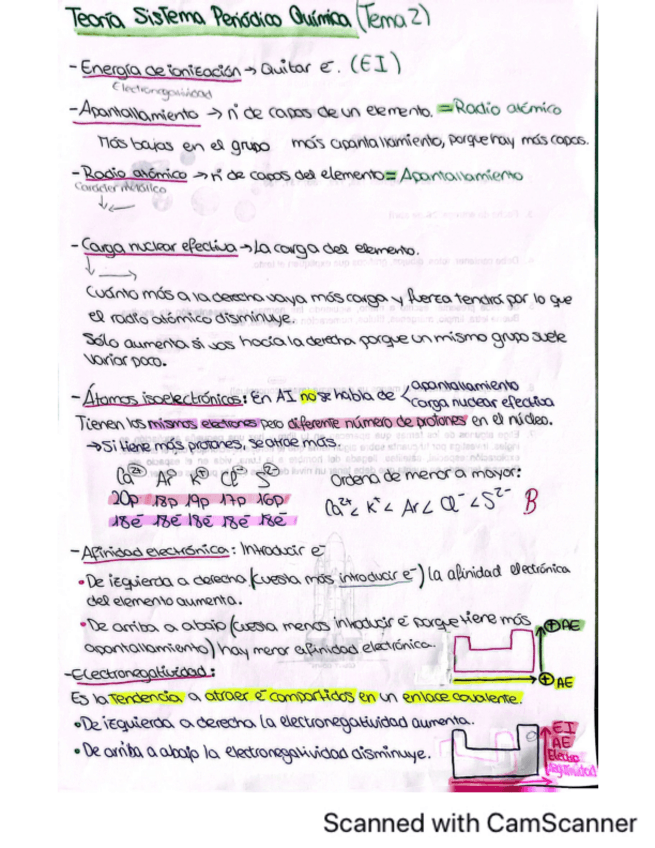 Teoría Sistema Periódico Química (Tema 2)
- Energía de ionización → Quitar e⁻. (EI)
Electronegatividad
- Apantallamiento → nº de capas de un elemento. = Radio atómico
Más bajas en el grupo más apantallamiento, porque hay más capas.
- Radio atómico → nº de capas del elemento = Apantallamiento
Carácter metálico
- Carga nuclear efectiva → La carga del elemento.
Cuánto más a la derecha vaya más carga y fuerza tendrá por lo que
el radio atómico disminuye.
Sólo aumenta si vas hacia la derecha porque un mismo grupo suele
variar poco.
- Átomos isoelectrónicos: En AI no se habla de < apantallamiento
carga nuclear efectiva
Tienen los mismos electrones pero diferente número de protones en el núcleo.
→ Si tiene más protones, se atrae más.
Ca²⁺ Ar K⁺ Cl⁻ S²⁻ Ordena de menor a mayor:
20p 18p 19p 17p 16p Ca²⁺ < K⁺ < Ar < Cl⁻ < S²⁻ B
18e⁻ 18e⁻ 18e⁻ 18e⁻ 18e⁻
- Afinidad electrónica: Introducir e⁻
• De izquierda a derecha (cuesta más introducir e⁻) la afinidad electrónica
del elemento aumenta.
• De arriba a abajo (cuesta menos introducir e⁻ porque tiene más
apantallamiento) hay menor afinidad electrónica.
⊕ AE
⊕ AE
- Electronegatividad:
Es la tendencia a atraer e⁻ compartidos en un enlace covalente.
• De izquierda a derecha la electronegatividad aumenta.
• De arriba a abajo la electronegatividad disminuye.
EI
AE
Electro
negatividad
Scanned with CamScanner